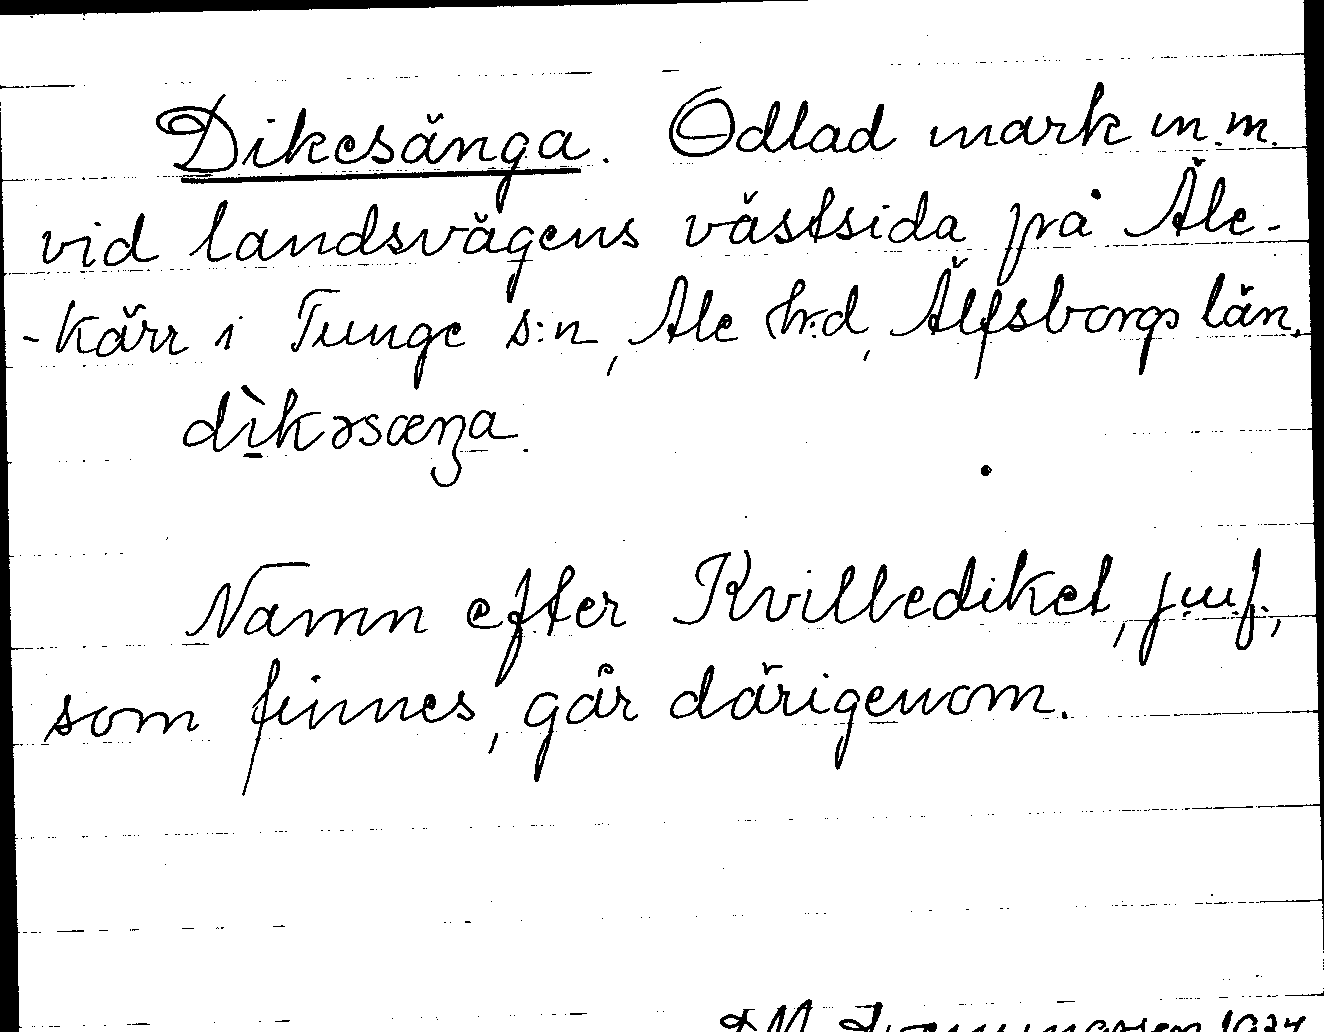 Dikesänga. Odlad mark m.m.
vid landsvägens västsida på Äle-
-kärr i Tunge s:n, Ale h:d, Älfsborgs län.
dìkəsæŋa.
Namn efter Kvillediket, jmf.,
som finnes, går därigenom.
1927